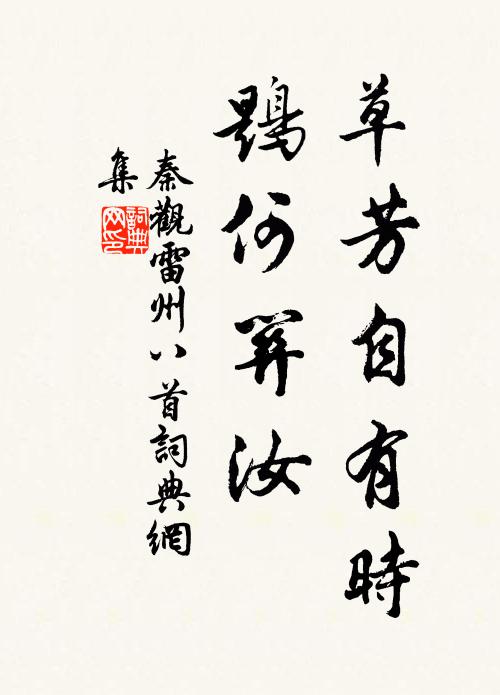 草芳自有時
鶗何關汝
秦觀雷州八首詞典網
集
詞典
网印